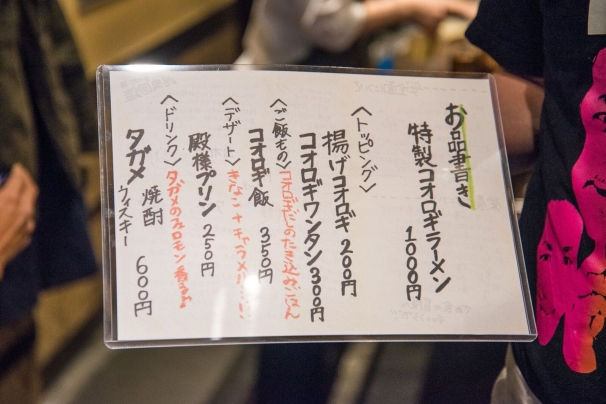 お品書き
特製コオロギラーメン
1000円
〈トッピング〉
揚げコオロギ 200円
コオロギワンタン 300円
〈ご飯もの〉コオロギだしのたき込みごはん
コオロギ飯 350円
〈デザート〉きなこ+キャラメル
殿様プリン 250円
〈ドリンク〉タガメのフェロモン香る
タガメ 焼酎
ウィスキー 600円